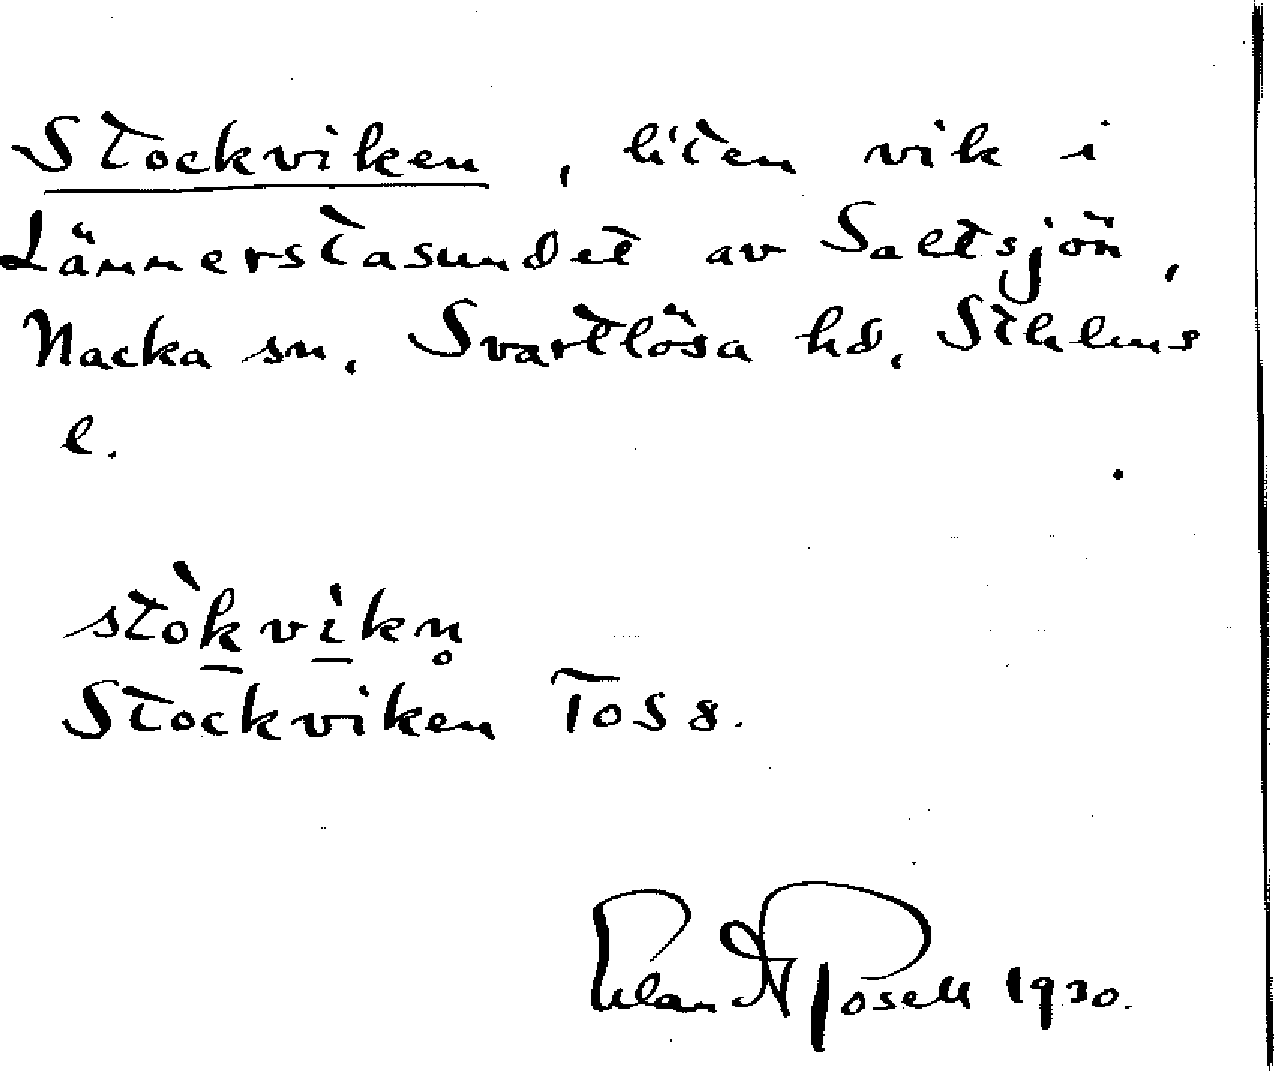 Stockviken, liten vik i
Lännerstasundet av Saltsjön,
Nacka sn, Svartlösa hd, Sthlms
l.
stòk̲vi̲kn̥
Stockviken Tos 8.
Rosell 1930.